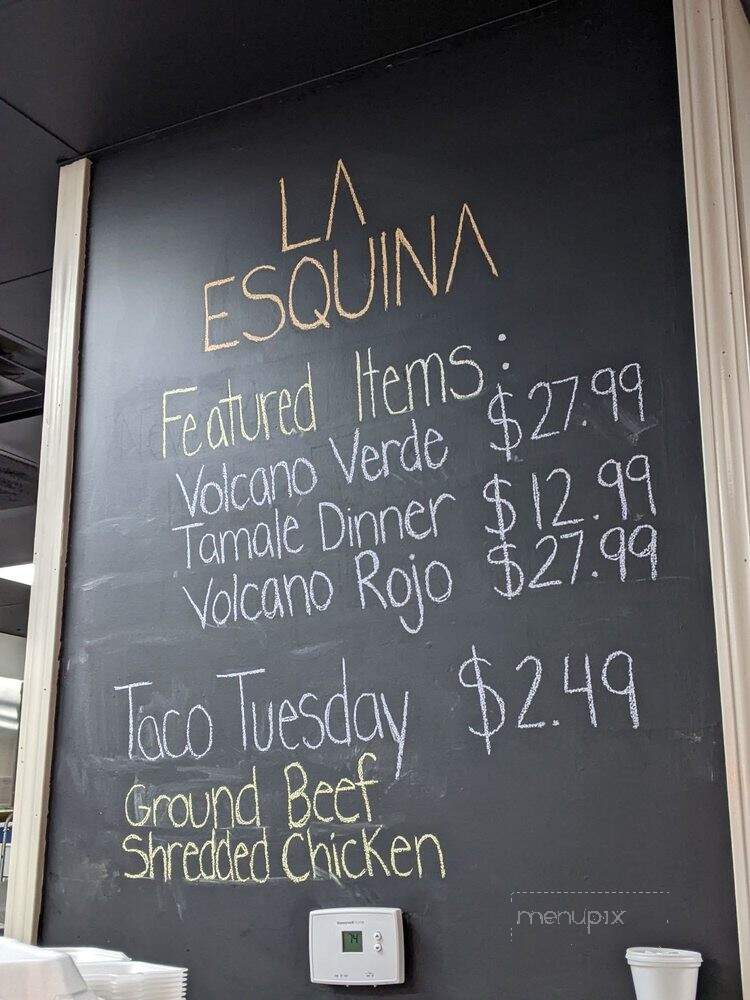 LA
ESQUINA
Featured Items:
Volcano Verde $27.99
Tamale Dinner $12.99
Volcano Rojo $27.99
Taco Tuesday $2.49
Ground Beef
Shredded Chicken
menupix
74